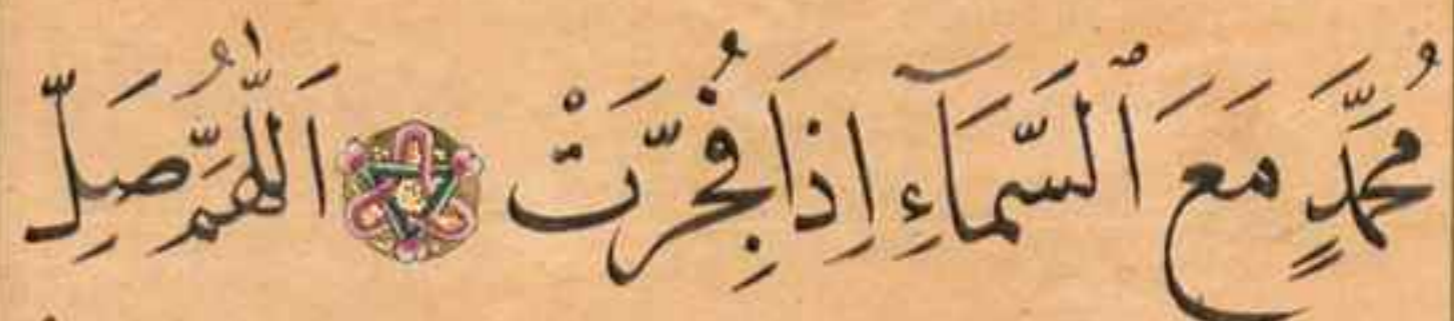 مُحَمَّدٍ مَعَ ٱلسَّمَآءِ اِذَا فُجِّرَتْ اَللّٰهُمَّ صَلِّ